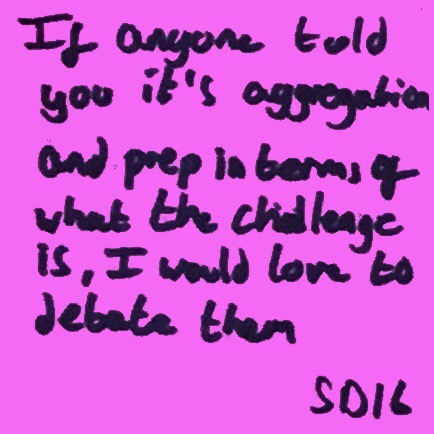 If anyone told
you it's aggregation
and prep in terms of
what the challenge
is, I would love to
debate them
SD16